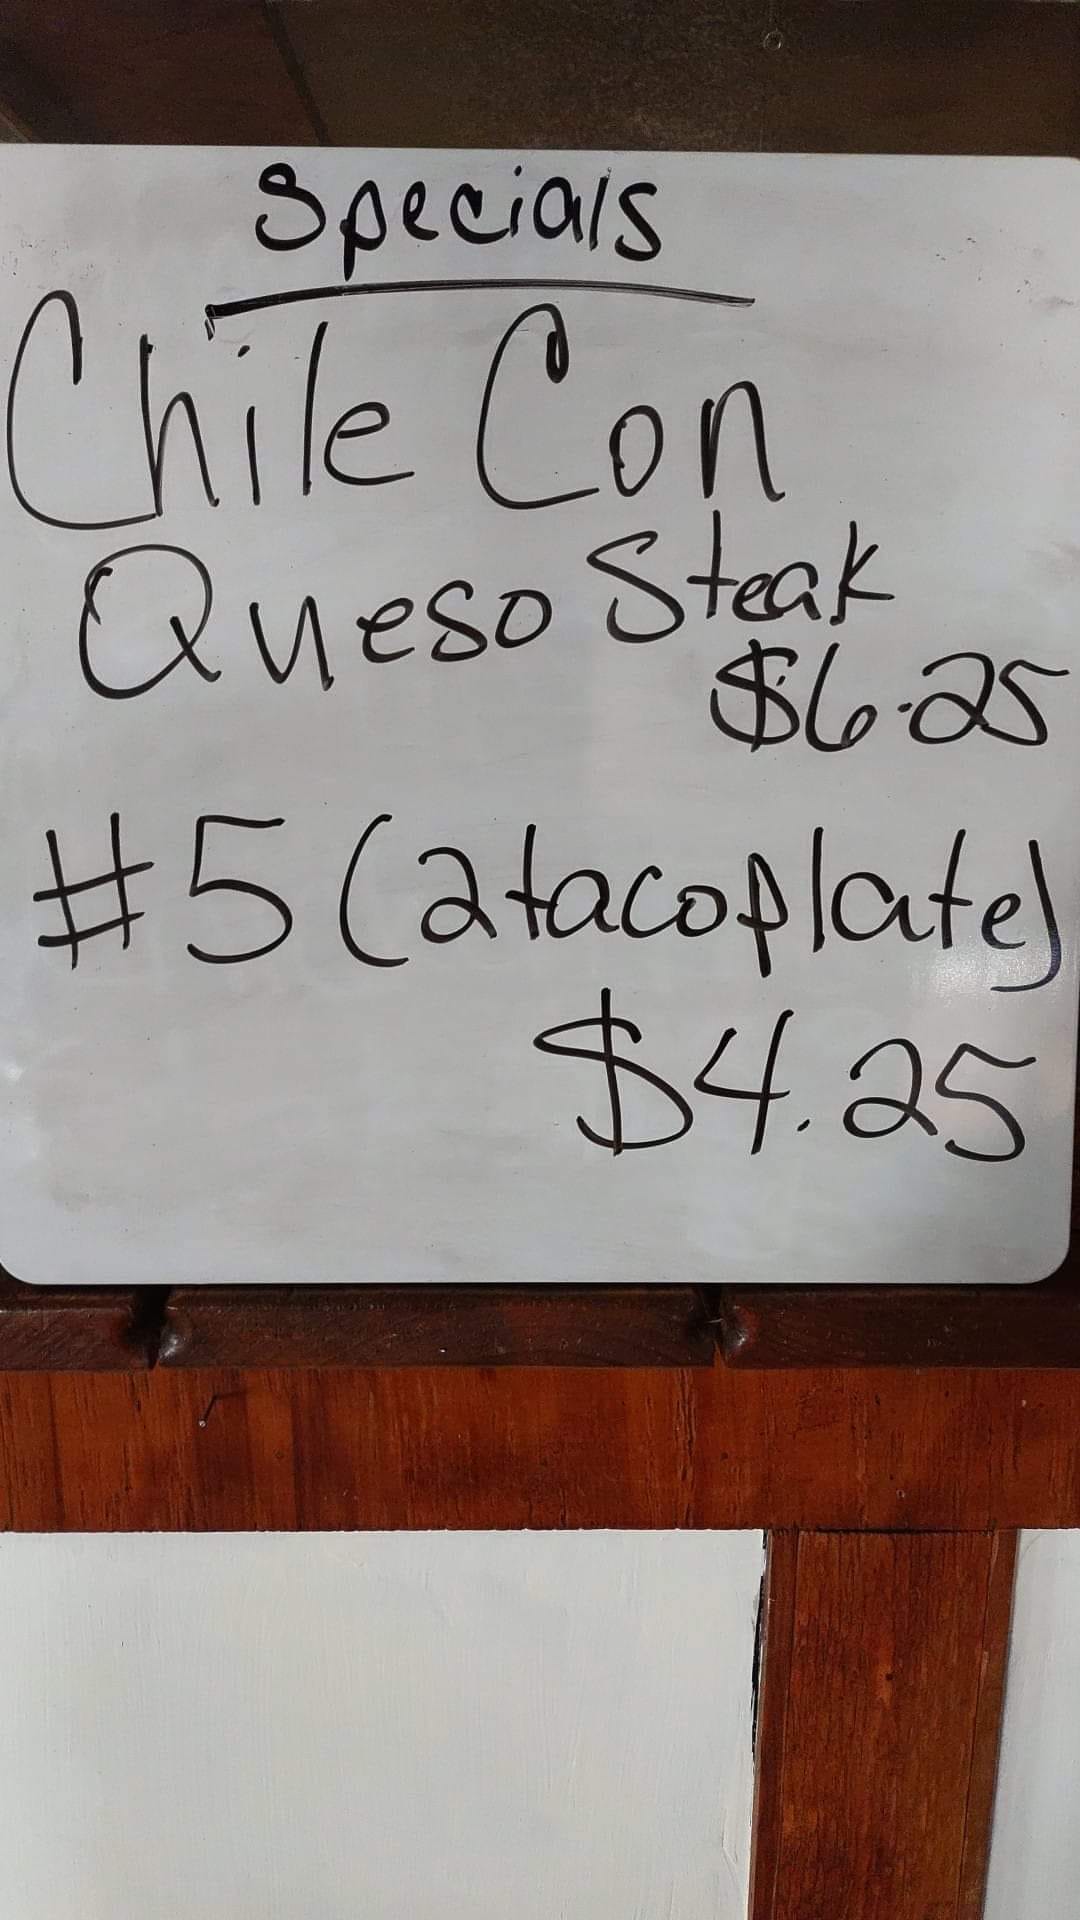 Specials
Chile Con
Queso Steak
$6.25
#5 (2 taco plate)
$4.25